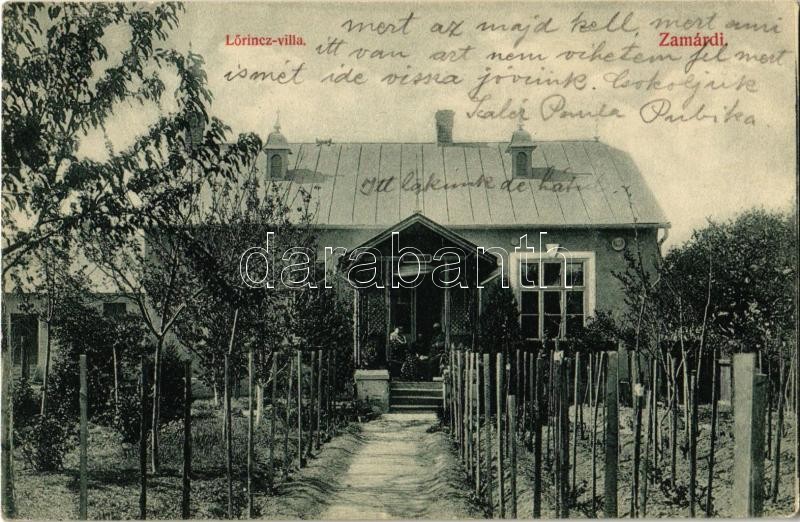 Lőrincz-villa.
Zamárdi.
mert az majd kell, mert ami
itt van azt nem vihetem fel mert
ismét ide vissza jövünk. Csokoljuk
Paula Pubika
Itt lakunk de
darabanth